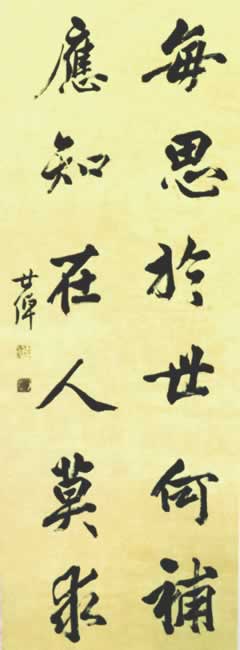 每思於世何補
應知在人莫求